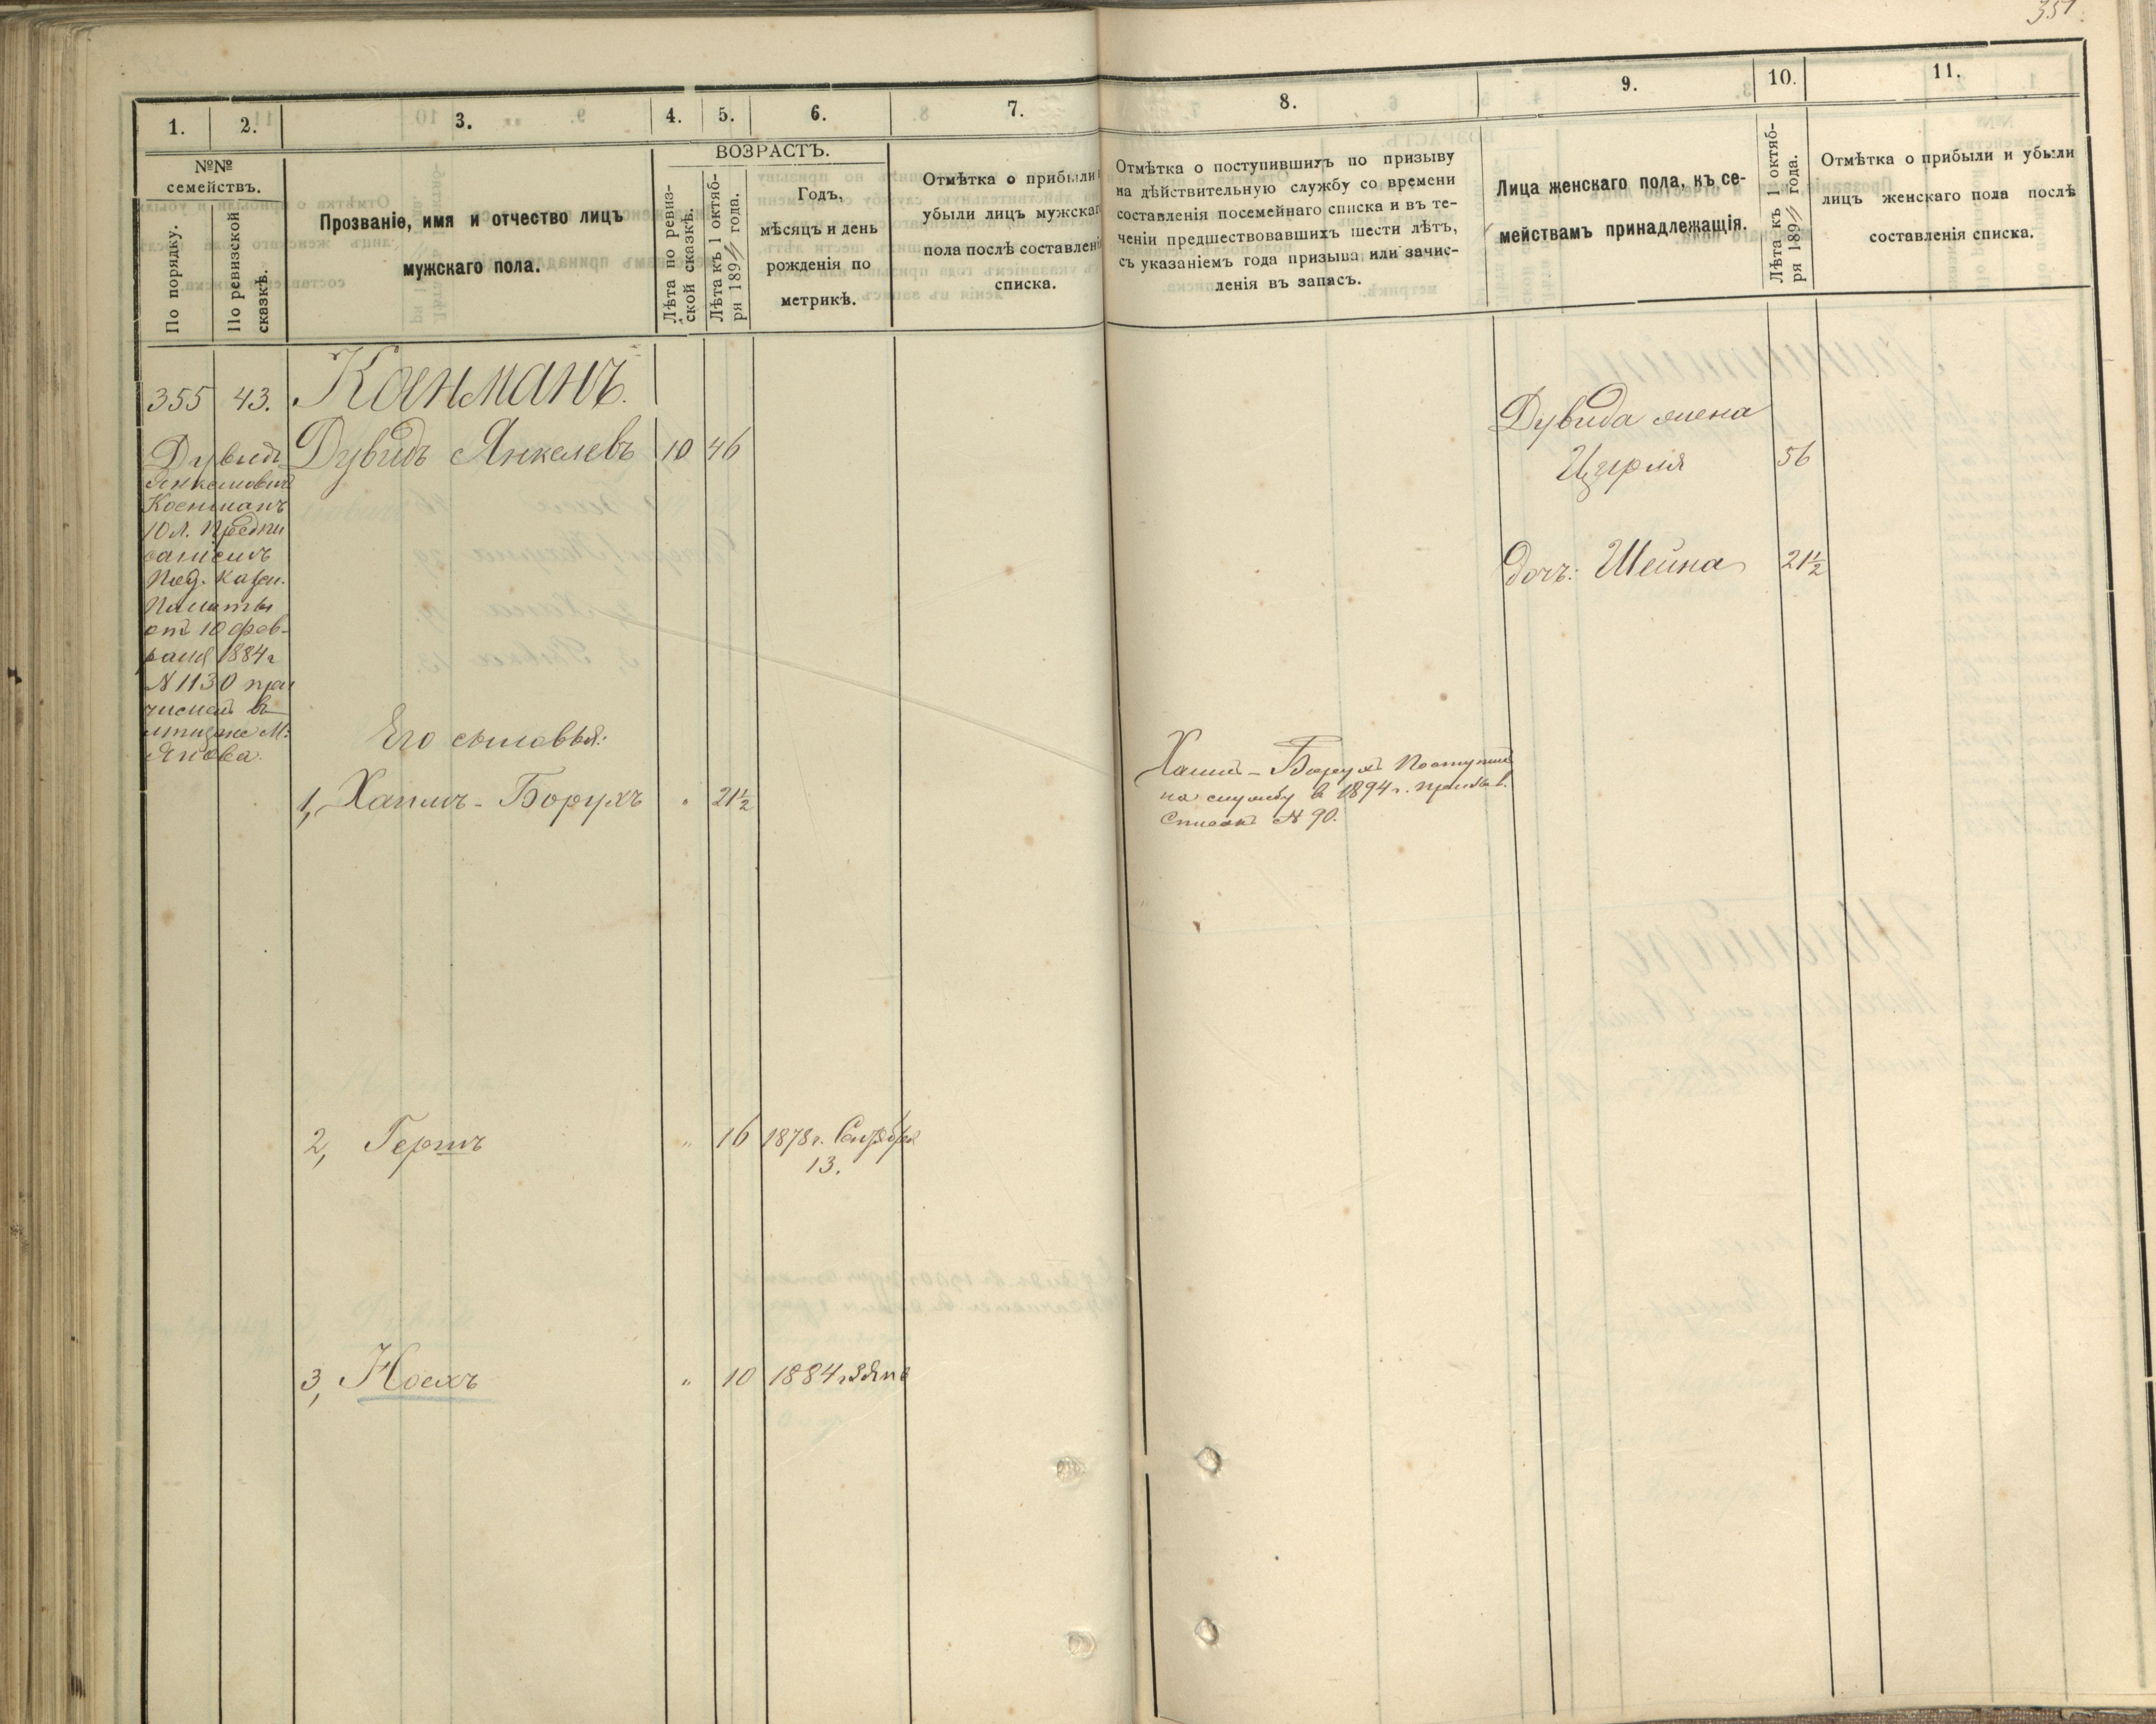 351.
1.
2.
3.
4.
5.
6.
7.
8.
9.
10.
11.
№№
семействъ.
По порядку.
По ревизской
сказкѣ.
Прозваніе, имя и отчество лицъ
мужскаго пола.
ВОЗРАСТЪ.
Лѣта по ревиз-
ской сказкѣ.
Лѣта къ 1 октяб-
ря 189 года.
Годъ,
мѣсяцъ и день
рожденія по
метрикѣ.
Отмѣтка о прибыли
убыли лицъ мужскаг
пола послѣ составлені
списка.
Отмѣтка о поступившихъ по призыву
на дѣйствительную службу со времени
составленія посемейнаго списка и въ те-
ченіи предшествовавшихъ шести лѣтъ,
съ указаніемъ года призыва или зачис-
ленія въ запасъ.
Лица женскаго пола, къ се-
мействамъ принадлежащія.
Лѣта къ 1 октяб-
ря 189 года.
Отмѣтка о прибыли и убыли
лицъ женскаго пола послѣ
составленія списка.
355 43.
Дувидъ Янкелевъ 10 46
Дувидъ
10 л. Предпи
саніемъ
Под. Казен.
Палаты
отъ 10 фев-
раля 1884 г
№ 1130 при
численъ въ
мѣщане М.
Янова.
Его сыновья:
1, Хаимъ-Борухъ " 21½
Хаимъ-Борухъ Поступилъ
на службу въ 1894 г. призыв.
Списокъ № 90.
2, Гершъ " 16 1878 г. Сентября
13.
3, " 10 1884 г.
Дувида жена
56
дочь: Шейна 21½